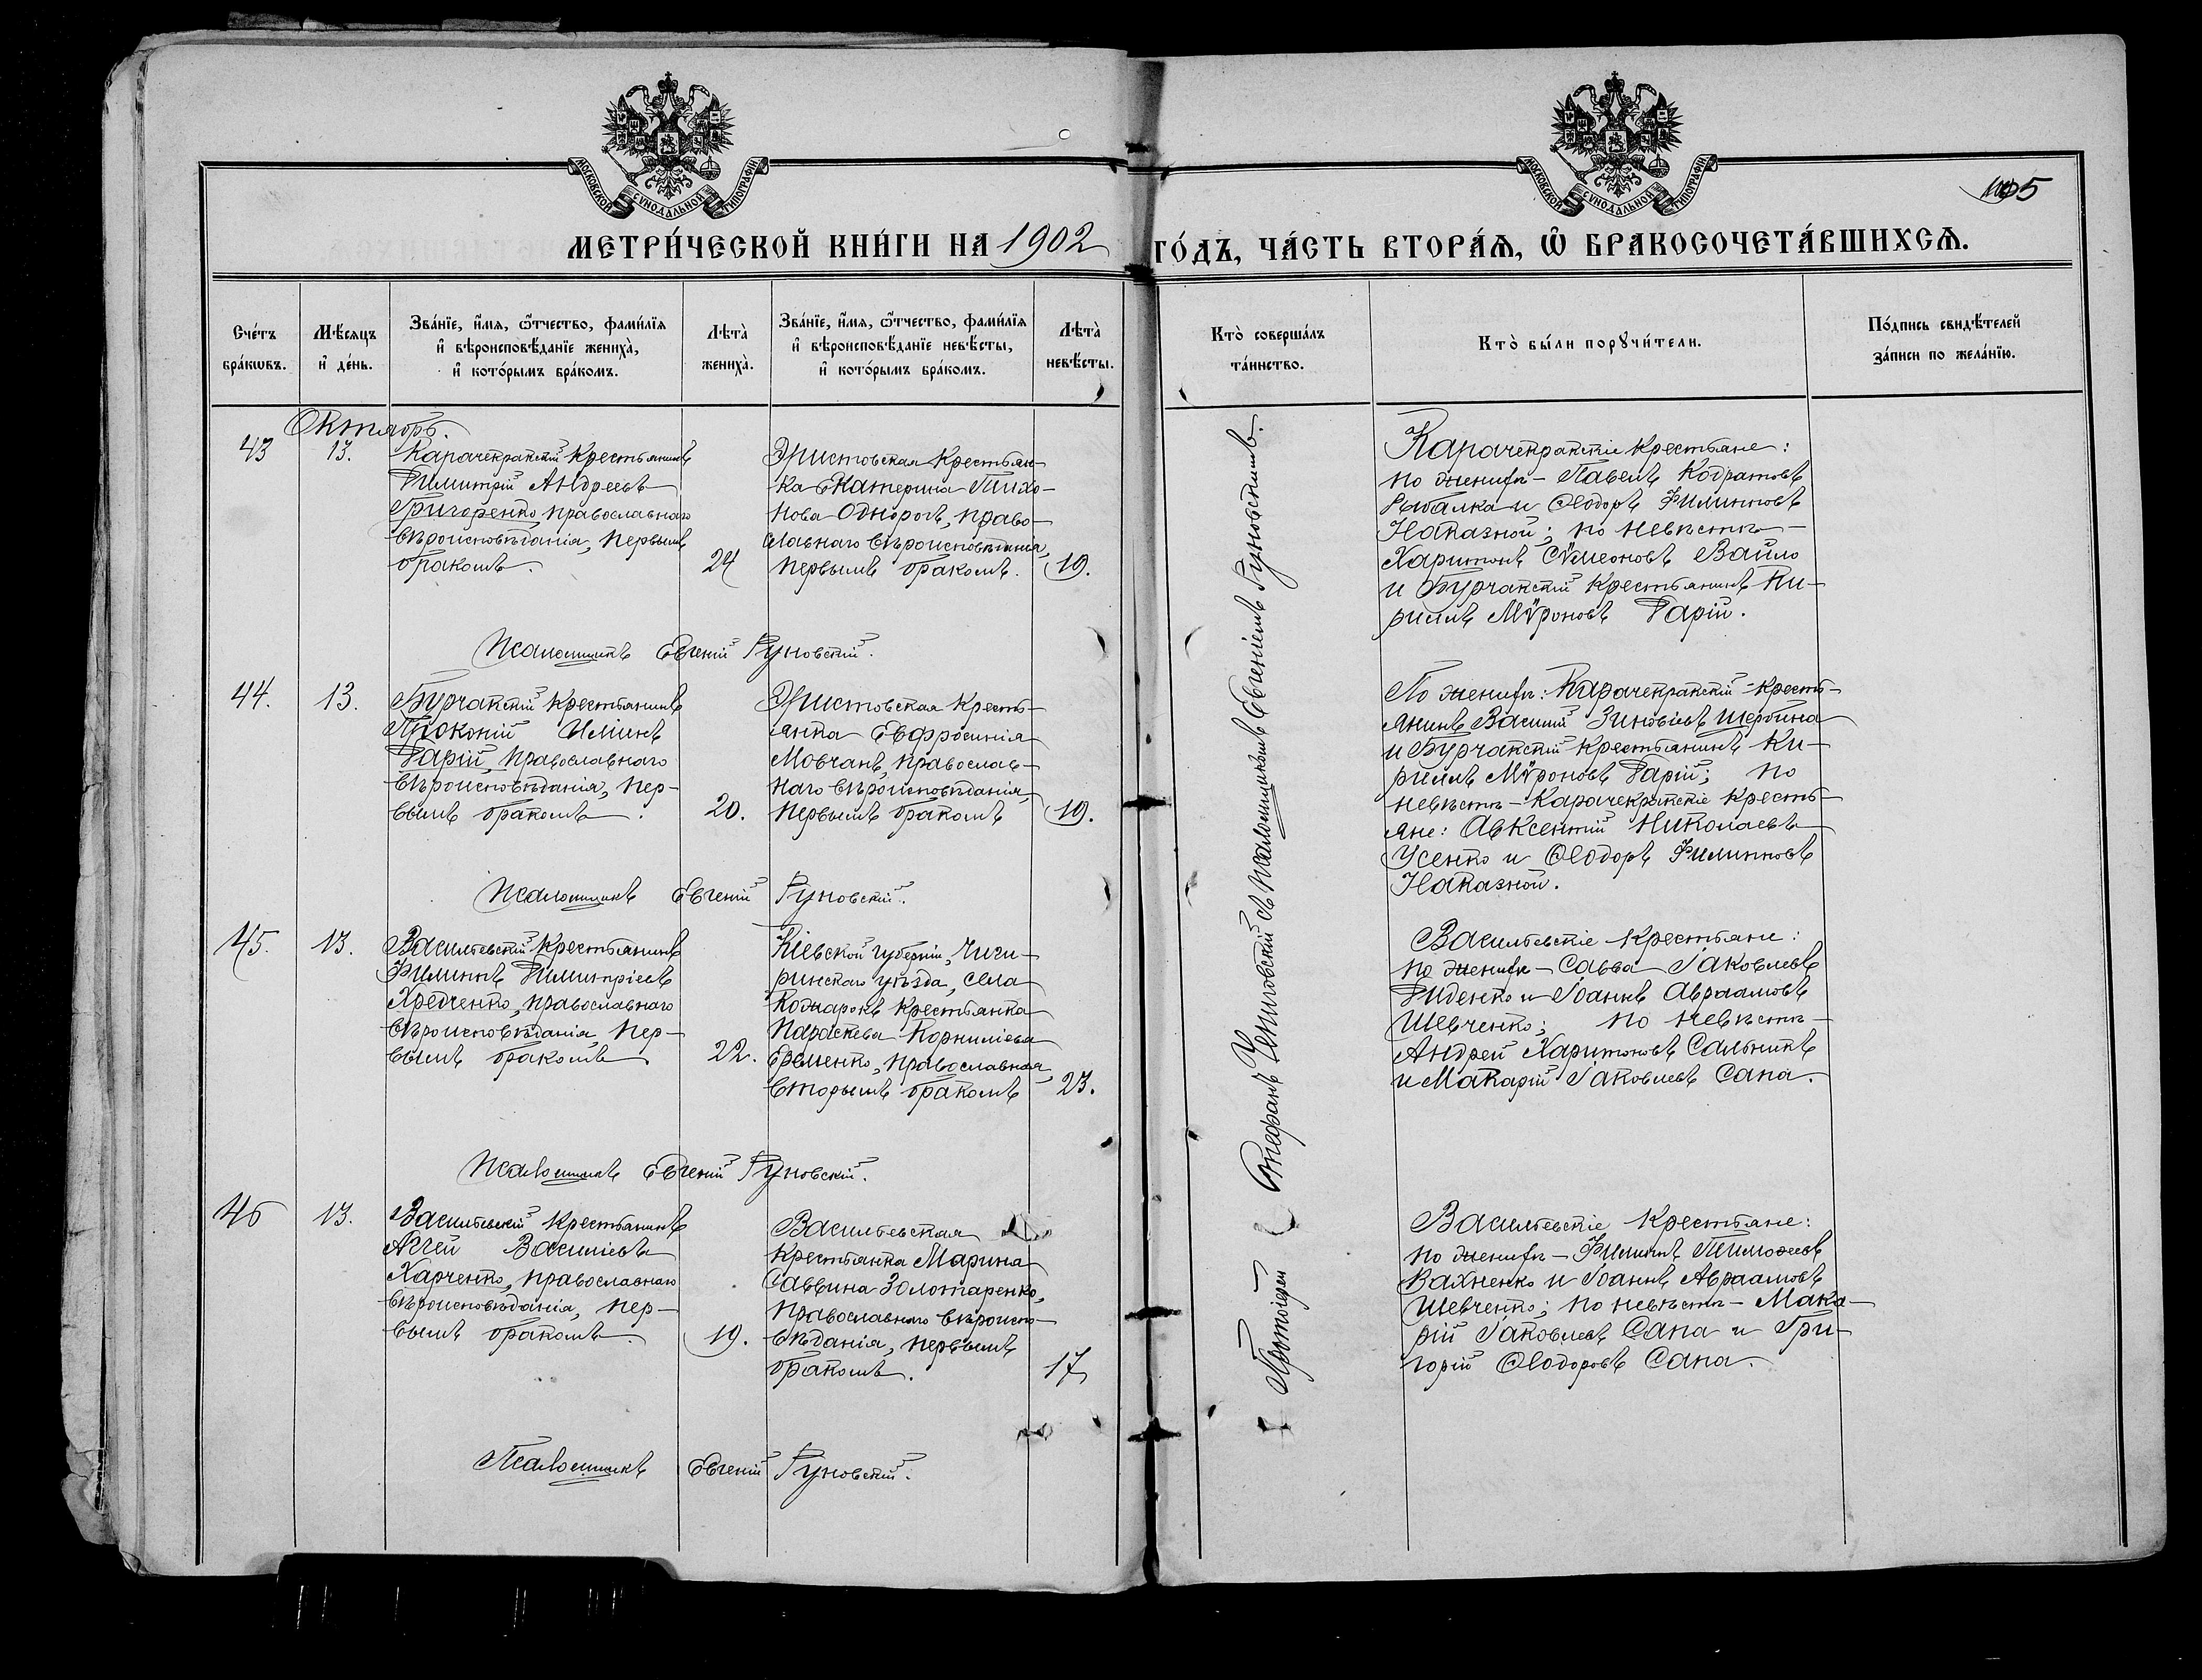 МОСКОВСКОЙ СѴНОДАЛЬНОЙ ТИПОГРАФІИ
МОСКОВСКОЙ СѴНОДАЛЬНОЙ ТИПОГРАФІИ
5
МЕТРИ́ЧЕСКОЙ КНИ́ГИ НА 1902 ГО́ДЪ, ЧА́СТЬ ВТОРА́Ѧ, Ѿ БРАКОСОЧЕТА́ВШИХСѦ.
Сче́тъ бра́кѡвъ.
Мѣ́сяцъ и҆ де́нь.
Зва́нїе, и҆́мѧ, ѻ҆́тчество, фами́лїѧ
и҆ вѣроисповѣ́данїе жениха̀,
и҆ кото́рымъ бра́комъ.
Лѣта̀ жениха̀.
Зва́нїе, и҆́мѧ, ѻ҆́тчество, фами́лїѧ
и҆ вѣроисповѣ́данїе невѣ́сты,
и҆ кото́рымъ бра́комъ.
Лѣта̀ невѣ́сты.
Кто̀ соверша́лъ
та́инство.
Кто̀ бы́ли порꙋчи́тели.
По́дпись свидѣ́телей
за́писи по жела́нїю.
Октябрь.
43
13.
Карачекракскій крестьянинъ
Димитрій Андреевъ
Григоренко, православнаго
вѣроисповѣданія, первымъ
бракомъ.
24
Эристовская крестьян-
ка Екатерина Тихо-
нова Однорогъ, право-
славнаго вѣроисповѣданія,
первымъ бракомъ.
19.
Карачекракскіе крестьяне:
по женихѣ – Павелъ Кодратовъ
Рыбалка и Ѳеодоръ Филипповъ
Наказной; по невѣстѣ –
Харитонъ Сѵмеоновъ Вайло
и Бурчакскій крестьянинъ Ки-
риллъ Мѵроновъ Гарій.
Псаломщикъ Евгеній Руновскій.
44.
13.
Бурчакскій крестьянинъ
Прокопій Иліинъ
Гарій, православнаго
вѣроисповѣданія, пер-
вымъ бракомъ.
20.
Эристовская кресть-
янка Евфросинія
Мовчанъ, православ-
наго вѣроисповѣданія,
первымъ бракомъ
19.
По женихѣ: Карачекракскій – кресть-
янинъ Василій Зиновіевъ Щербина
и Бурчакскій крестьянинъ Ки-
риллъ Мѵроновъ Гарій; по
невѣстѣ – Карачекракскіе кресть-
яне: Авксентій Николаевъ
Усенко и Ѳеодоръ Филипповъ
Наказной.
Псаломщикъ Евгеній Руновскій.
45.
13.
Васильевскій крестьянинъ
Филиппъ Димитріевъ
Хредченко, православнаго
вѣроисповѣданія, пер-
вымъ бракомъ
22.
Кіевской губерніи, Чиги-
ринскаго уѣзда, села
Кожарокъ крестьянка
Параскева Корниліева
Еременко, православная,
вторымъ бракомъ
23.
Васильевскіе крестьяне:
по женихѣ – Савва Іаковлевъ
Диденко и Іоаннъ Авраамовъ
Шевченко; по невѣстѣ –
Андрей Харитоновъ Сальникъ
и Макарій Іаковлевъ Сапа.
Псаломщикъ Евгеній Руновскій.
46
13.
Васильевскій крестьянинъ
Аггей Василіевъ
Харченко, православнаго
вѣроисповѣданія, пер-
вымъ бракомъ.
19.
Васильевская
крестьянка Марина
Саввина Золотаренко,
православнаго вѣроиспо-
вѣданія, первымъ
бракомъ.
17
Васильевскіе крестьяне:
по женихѣ – Филиппъ Тимоѳеевъ
Вахненко и Іоаннъ Авраамовъ
Шевченко; по невѣстѣ – Мака-
рій Іаковлевъ Сапа и Гри-
горій Ѳеодоровъ Сапа.
Псаломщикъ Евгеній Руновскій.
Протоіерей Стефанъ Чениговскій съ псаломщикомъ Евгеніемъ Руновскимъ.